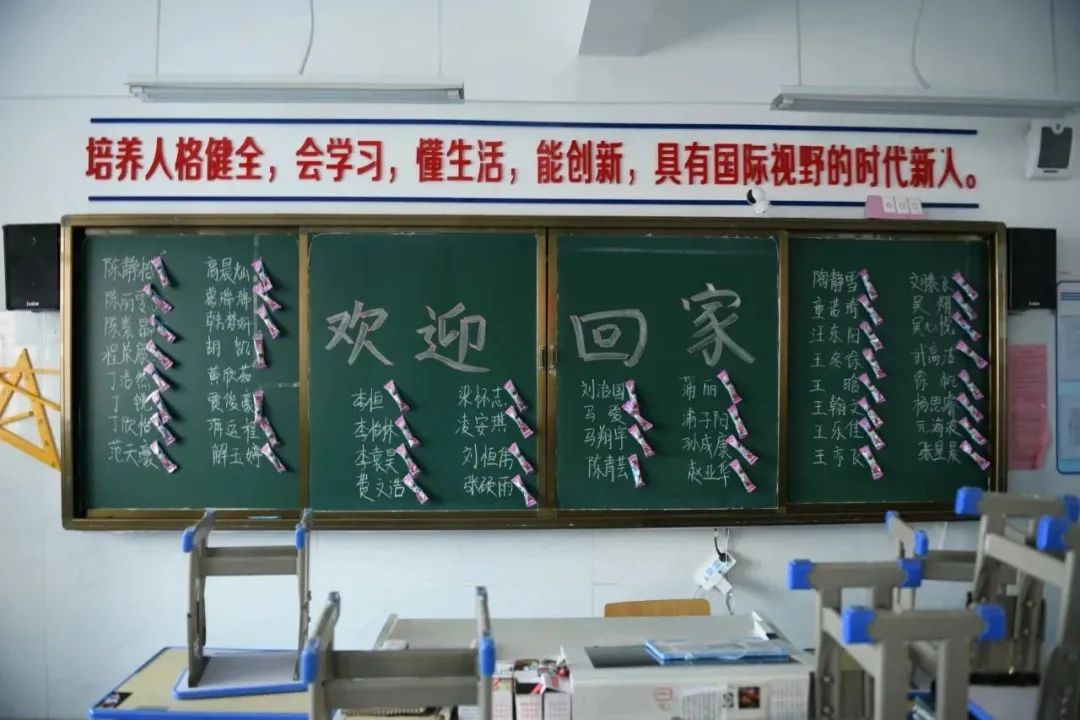 培养人格健全，会学习，懂生活，能创新，具有国际视野的时代新人。
欢迎 回家
陈静怡
陈丽雯
陈紫昂
丁浩然
丁锐
丁欣怡
范天豪
高晨灿
葛瑞瑞
韩梦妍
胡凯
黄欣茹
贾俊豪
蒋运程
解玉婷
李桓
李柏林
李袁昊
费文浩
梁怀志
凌安琪
刘恒雨
张硕雨
刘治国
马爱
马翔宇
陈青芸
蒲丽
浦子阳
孙成康
赵业华
陶静雪
童茜琦
汪东阳
王冬徐
王晗
王翰文
王乐佳
王亦飞
文滕飞
吴翔
吴心悦
武高洁
徐帆
杨思睿
张星晨